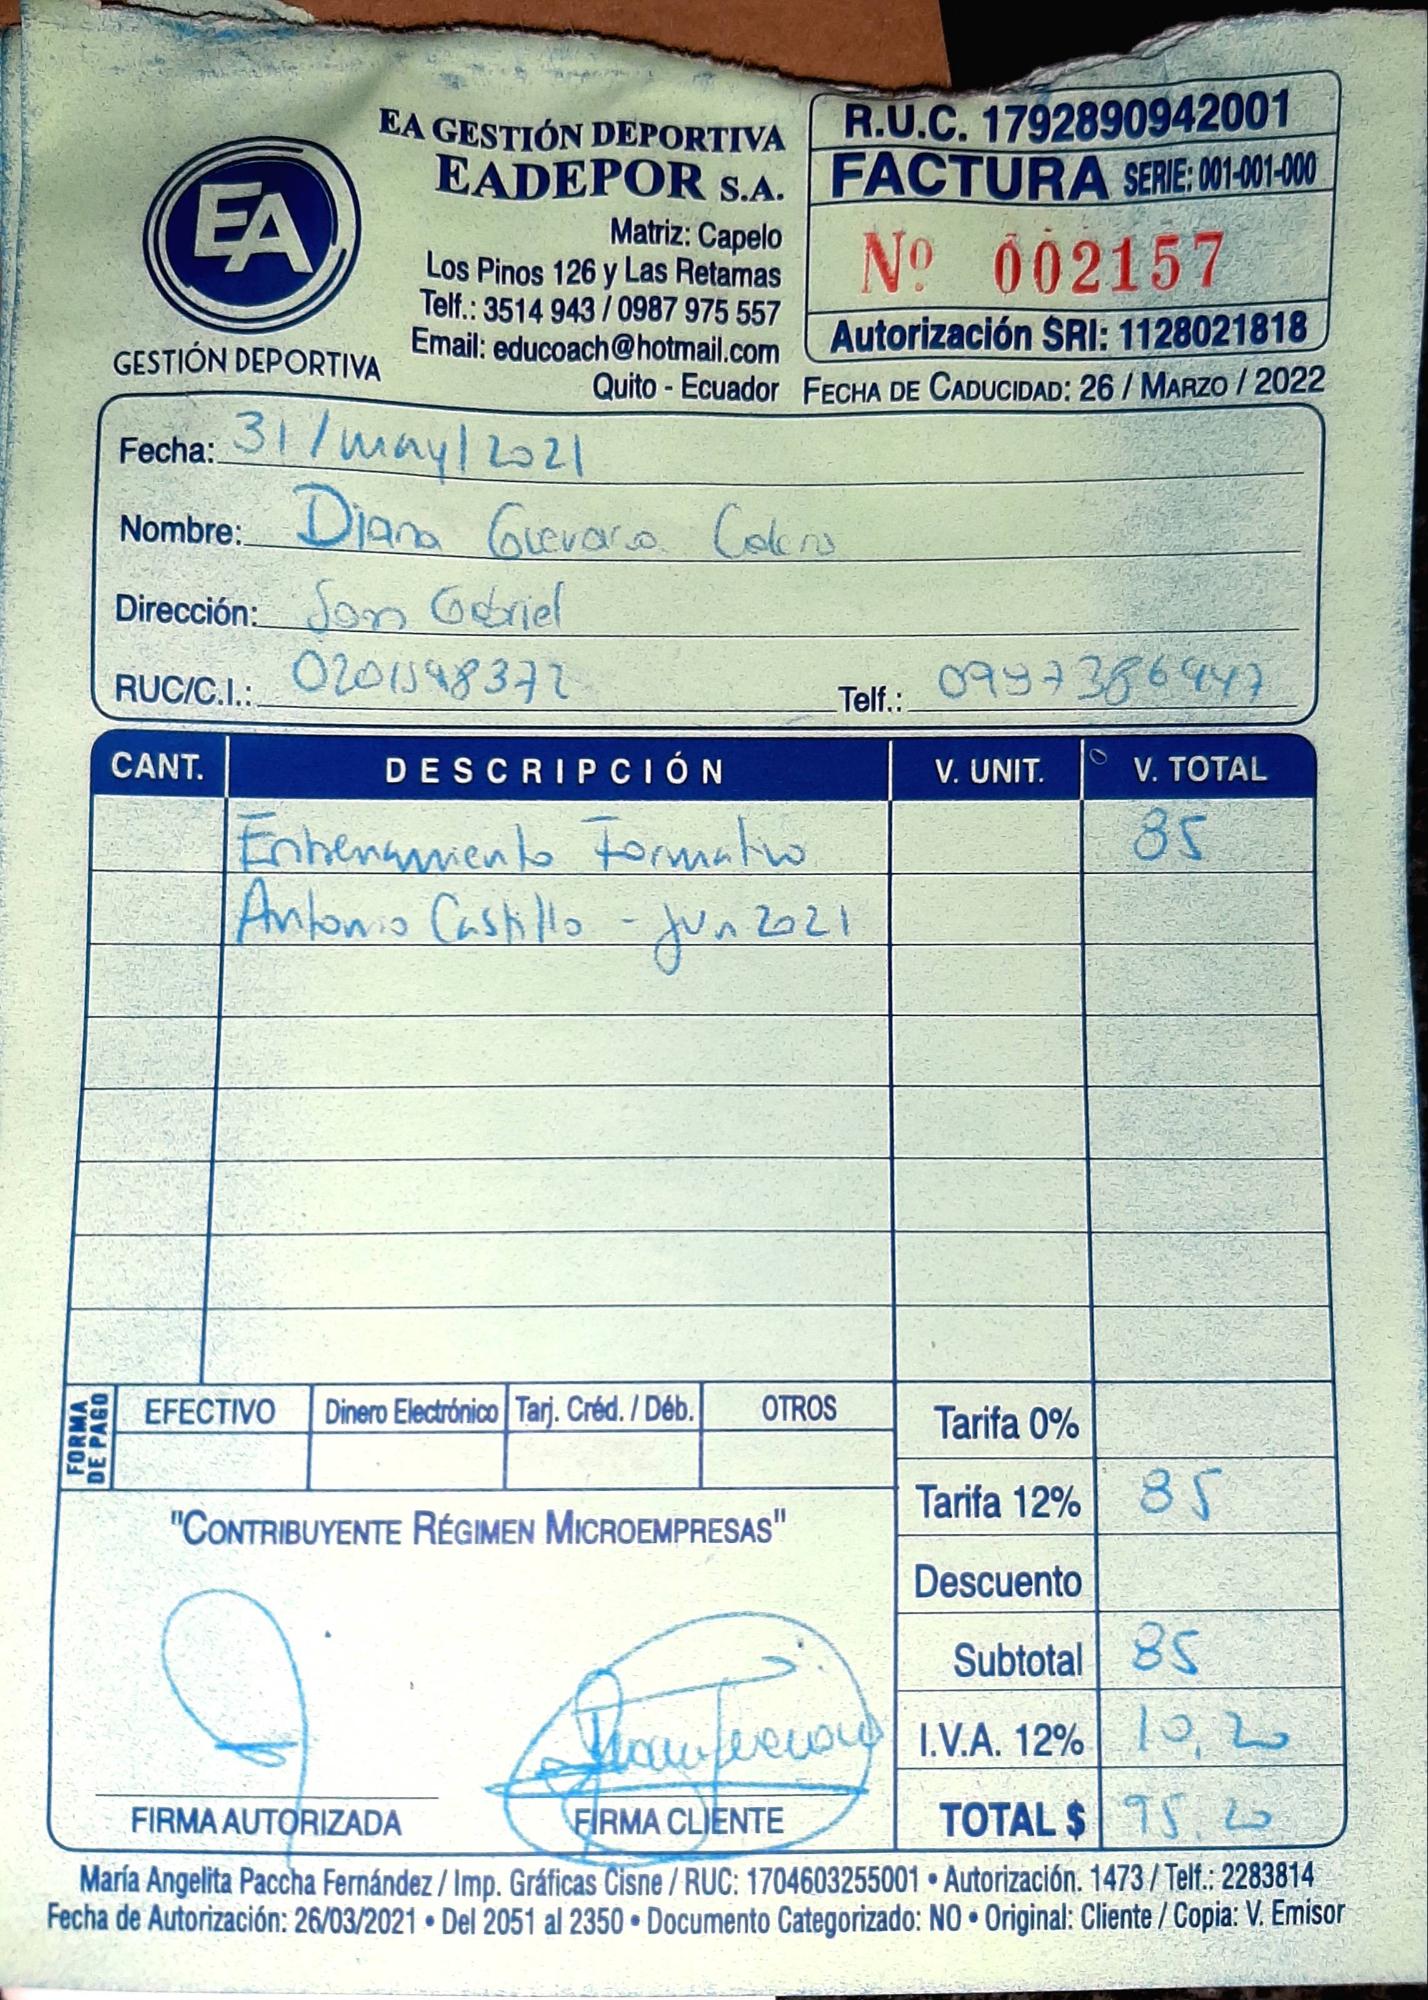 EA GESTIÓN DEPORTIVA
EADEPOR S.A.
Matriz: Capelo
Los Pinos 126 y Las Retamas
Telf.: 3514 943 / 0987 975 557
Email: educoach@hotmail.com
Quito - Ecuador
EA
GESTIÓN DEPORTIVA
R.U.C. 1792890942001
FACTURA SERIE: 001-001-000
Nº 002157
Autorización SRI: 1128021818
FECHA DE CADUCIDAD: 26 / MARZO / 2022
Fecha: 31/may/2021
Nombre: Diana Guevara
Dirección: San Gabriel
RUC/C.I.: 0201548372 Telf.:
CANT. DESCRIPCIÓN V. UNIT. V. TOTAL
Entrenamiento Formativo 85
Antonio Castillo - Jun 2021
FORMA DE PAGO
EFECTIVO Dinero Electrónico Tarj. Créd. / Déb. OTROS
Tarifa 0%
Tarifa 12% 85
Descuento
Subtotal 85
I.V.A. 12% 10,20
TOTAL $ 95.20
"CONTRIBUYENTE RÉGIMEN MICROEMPRESAS"
FIRMA AUTORIZADA FIRMA CLIENTE
María Angelita Paccha Fernández / Imp. Gráficas Cisne / RUC: 1704603255001 • Autorización. 1473 / Telf.: 2283814
Fecha de Autorización: 26/03/2021 • Del 2051 al 2350 • Documento Categorizado: NO • Original: Cliente / Copia: V. Emisor